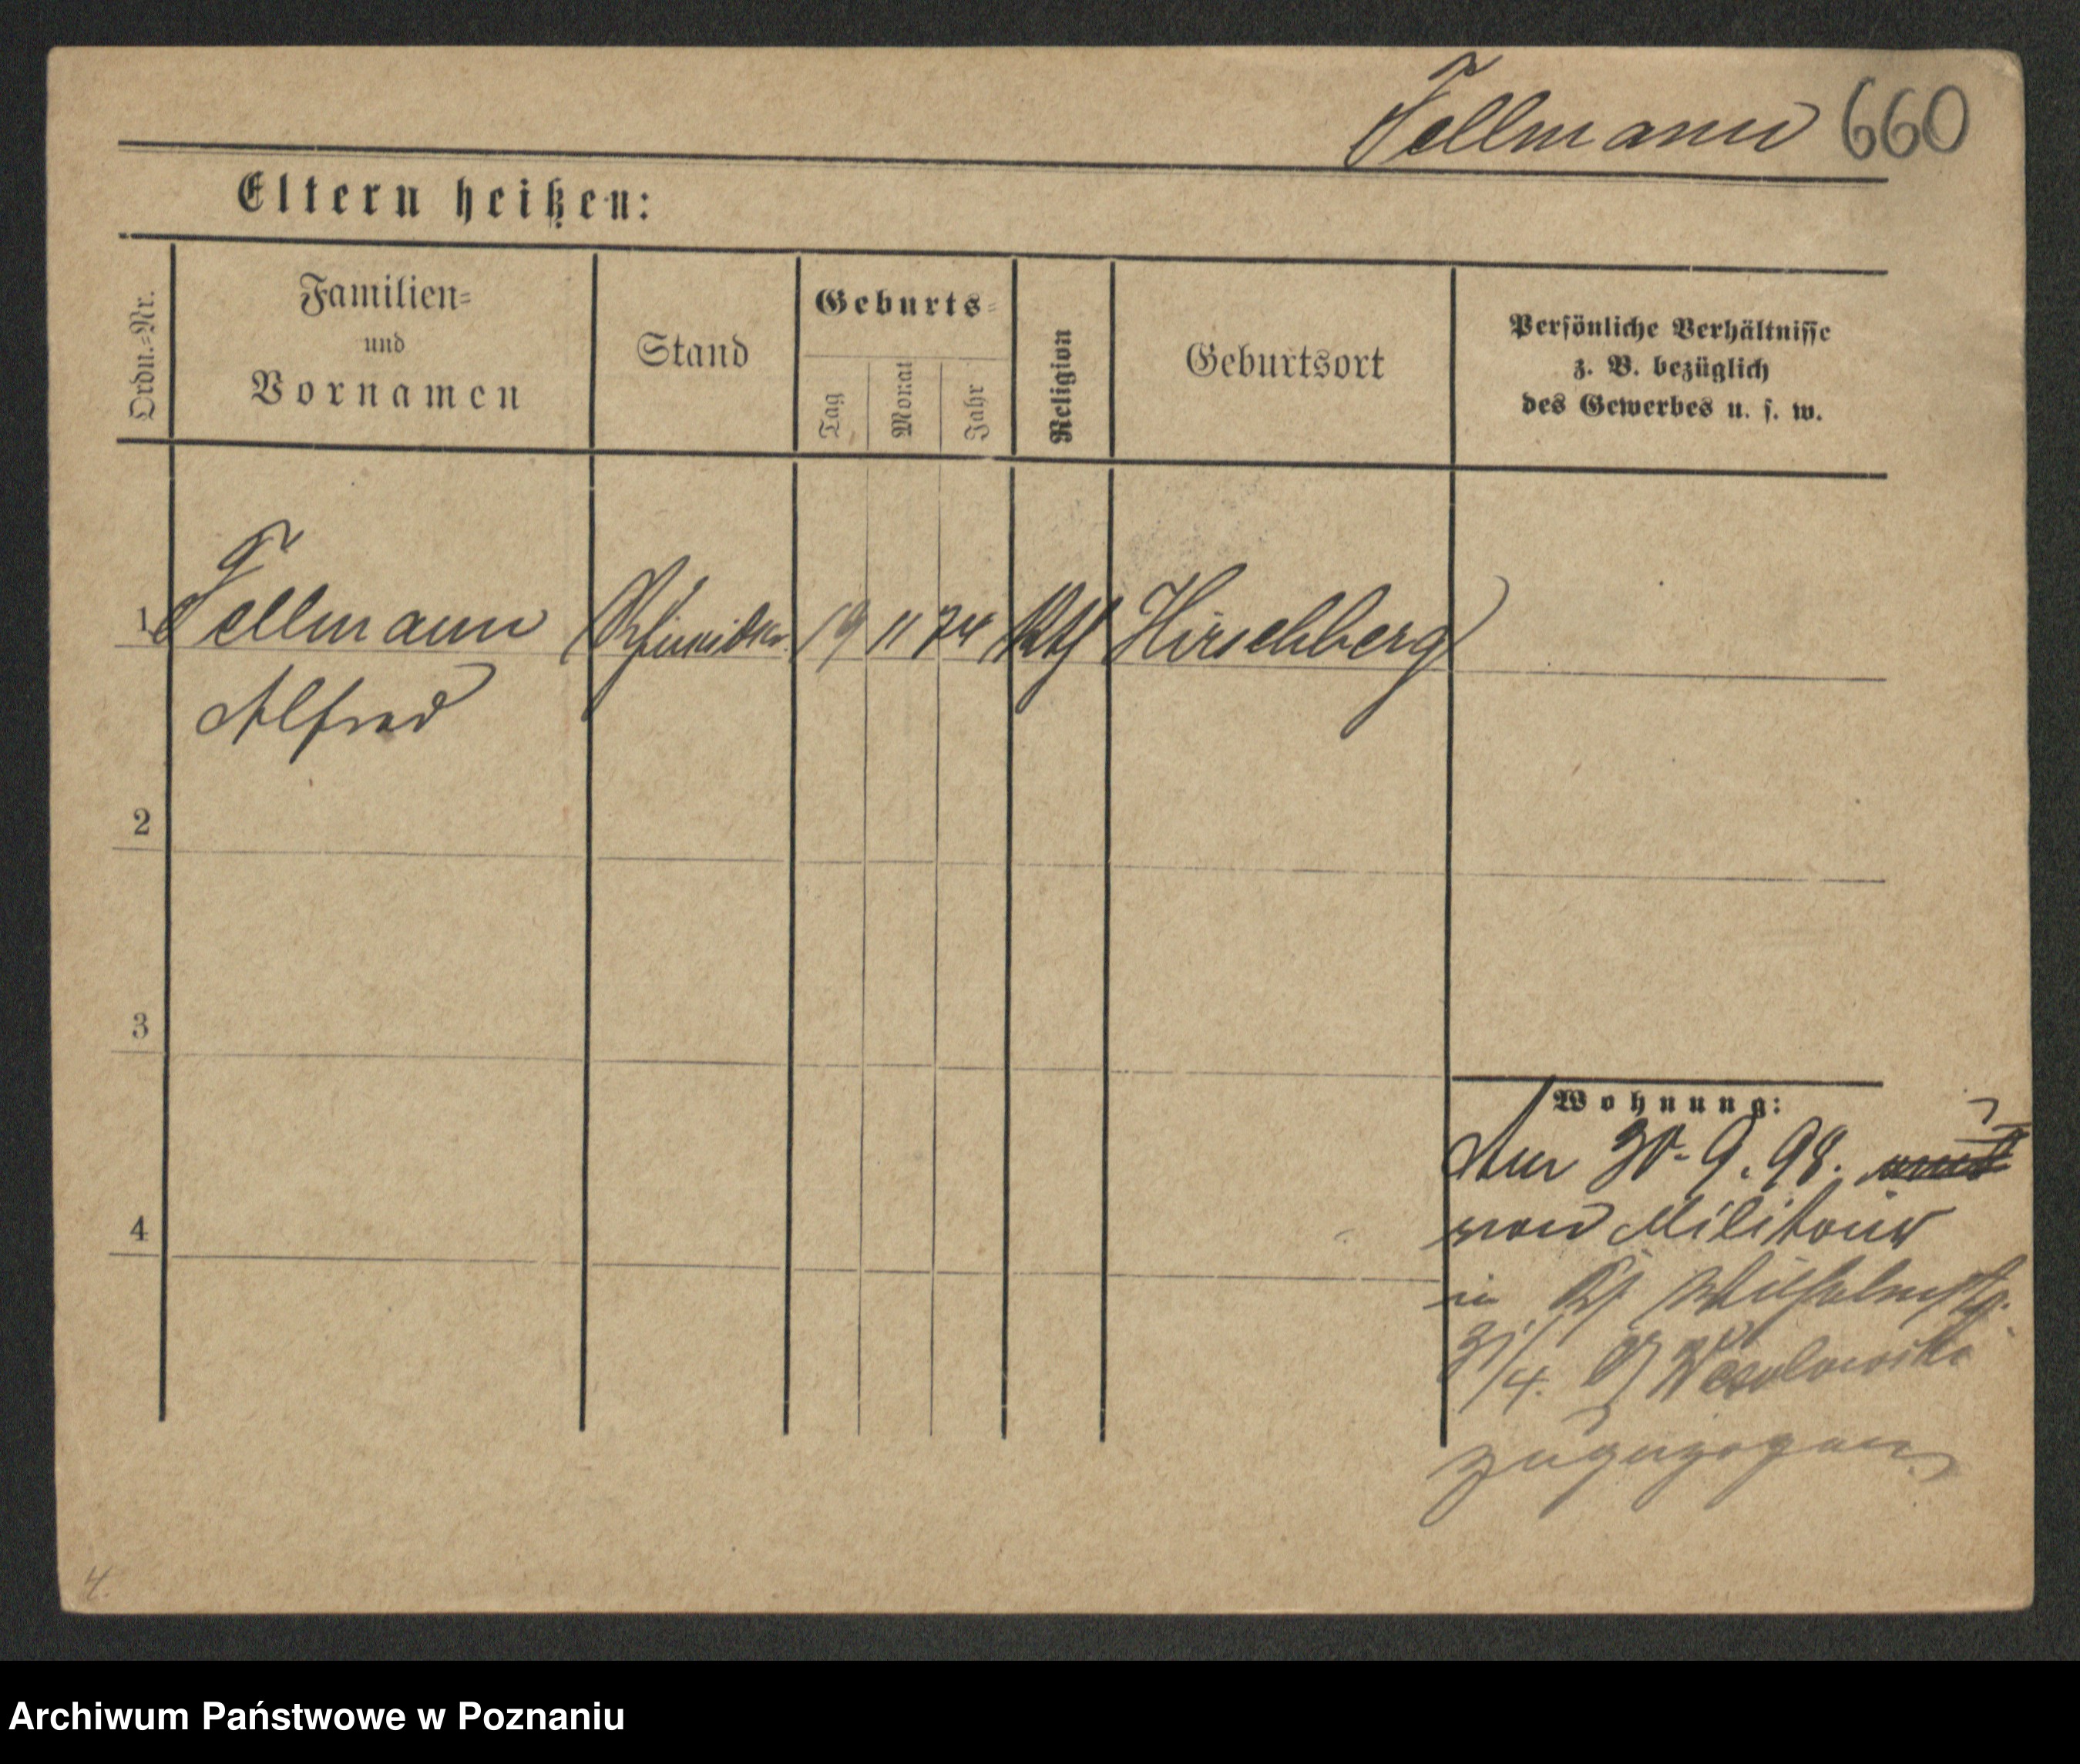 Fellmann 660
Eltern heißen:
Ordn.-Nr.
Familien-
und
Vornamen
Stand
Geburts-
Tag
Monat
Jahr
Religion
Geburtsort
Persönliche Verhältnisse
z. B. bezüglich
des Gewerbes u. s. w.
1 Fellmann 19 11 74 Kth Hirschberg
Alfred
2
3
4
Wohnung:
Am 30.9.98.
vom Militair
in Wilhelmstr.
31/4.
zugezogen
4.
Archiwum Państwowe w Poznaniu